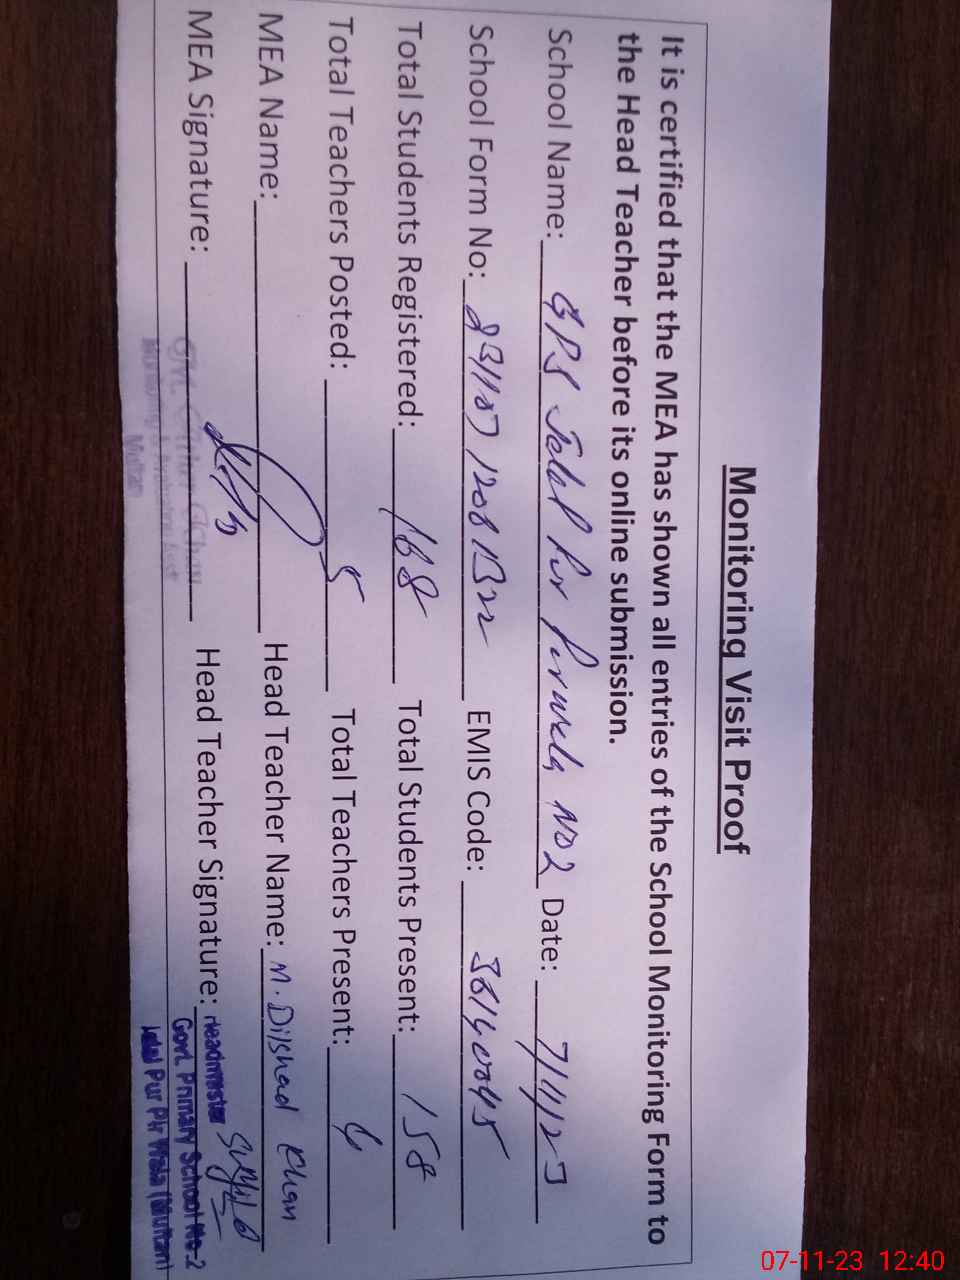 Monitoring Visit Proof
It is certified that the MEA has shown all entries of the School Monitoring Form to
the Head Teacher before its online submission.
School Name: GPS Jalal Pur Pirwala NO2 Date: 7/11/23
School Form No: EMIS Code:
Total Students Registered: 168 Total Students Present: 158
Total Teachers Posted: 5 Total Teachers Present:
MEA Name: Head Teacher Name: M. Dilshad Khan
MEA Signature: Head Teacher Signature:
Headmaster
Govt. Primary School No-2
Jalal Pur Pir Wala (Multan)
Multan
07-11-23 12:40